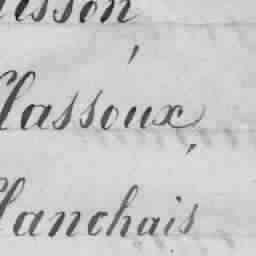 isson
lassoux
lanchais